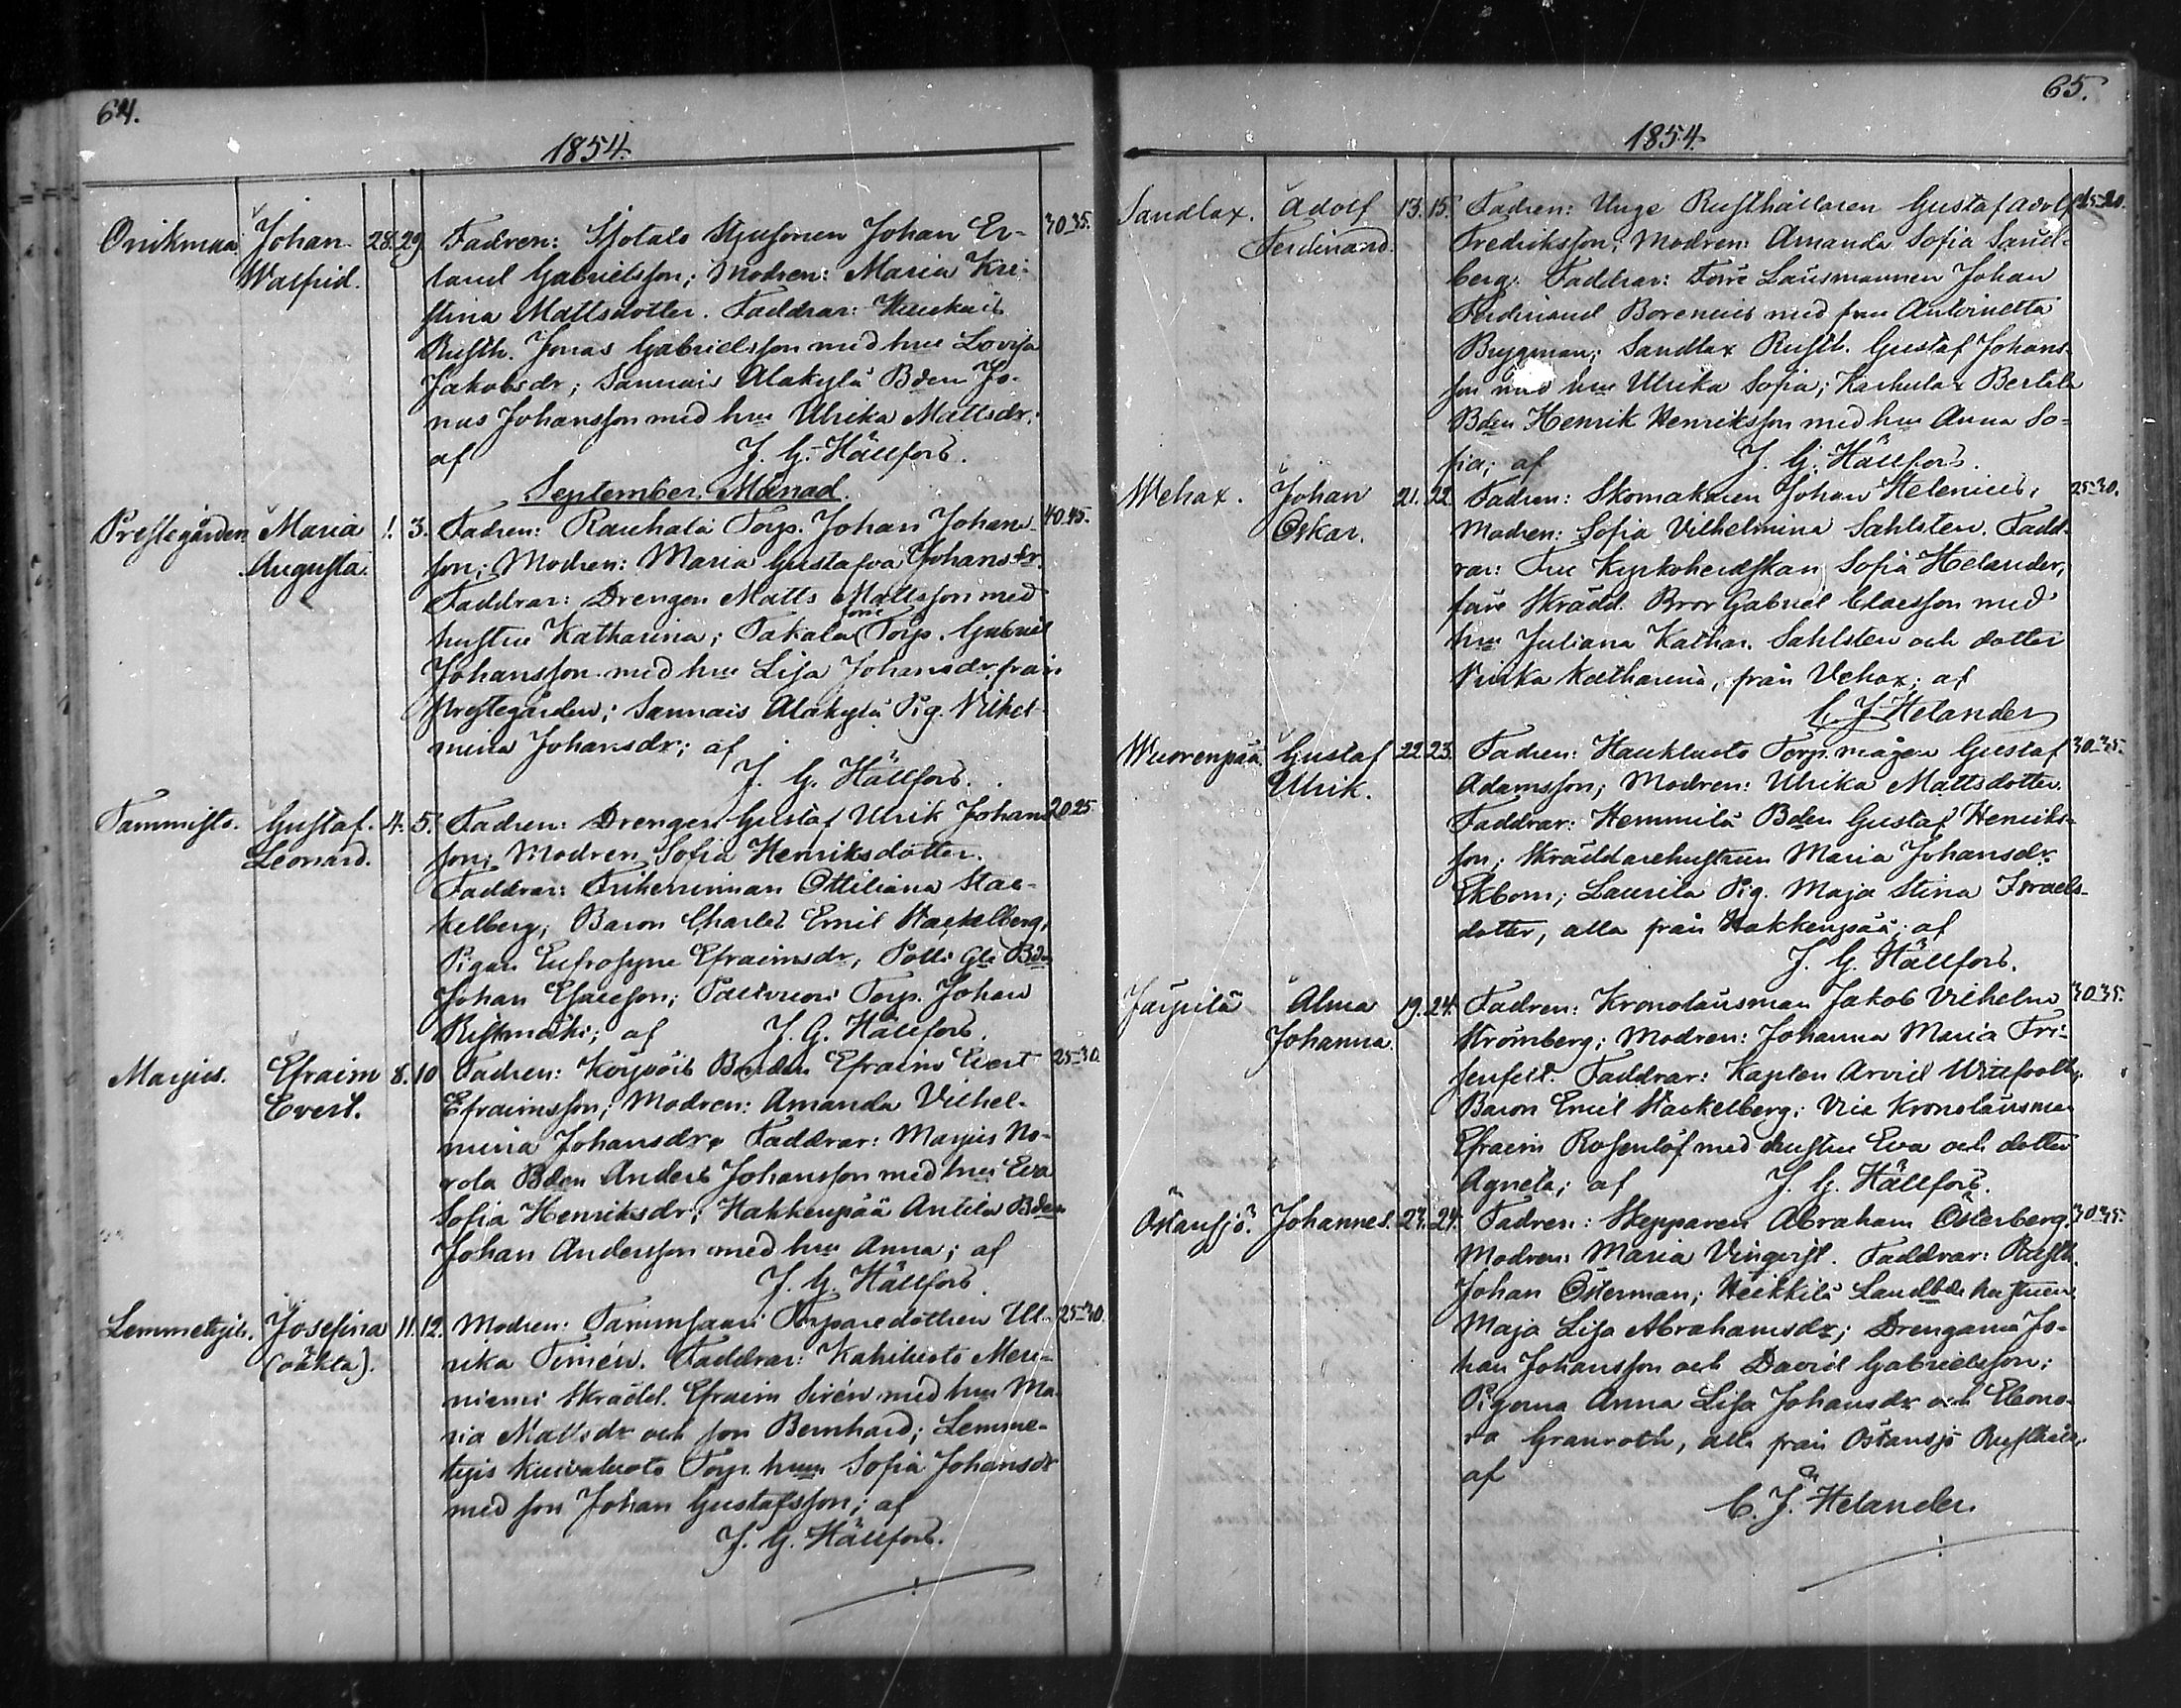 64.
1854.
Onikmaa Johan Walfrid. 28. 29 Fadren: Sjotalo Styfsonen Johan Er- 30-35.
land Gabrielsson; Modren: Maria Kri-
stina Mattsdotter. Faddrar:
Rusth. Jonas Gabrielsson med hu Lovisa
Jakobsdr; Sannais Alakylä Bden Jo-
nas Johansson med hu Ulrika Mattsdr;
af J. G. Hällfors.
September Månad.
Prestegården Maria Augusta. 1. 3. Fadren: Rauhala Torp. Johan Johans- 40-45.
son; Modren: Maria Gustafva Johansdr.
Faddrar: Drengen Matts Mattsson med
hustru Katharina; Takala förre Torp. Gabriel
Johansson med hu Lisa Johansdr, från
Prestegården; Sannais Alakylä Pig. Vilhel-
mina Johansdr; af
J. G. Hällfors.
Tammisto. Gustaf Leonard. 4. 5. Fadren: Drengen Gustaf Ulrik Johans- 20-25.
son; Modren Sofia Henriksdotter.
Faddrar: Friherrinnan Ottiliana Stac-
kelberg; Baron Charles Emil Stackelberg,
Pigan Eufrosyne Efraimsdr, Bden
Johan Esaiesson; Torp. Johan
Ristimäki; af J. G. Hällfors.
Marjus. Efraim Evert. 8. 10 Fadren: Korpvois Bonden Efraim Evert 25-30.
Efraimsson; Modren: Amanda Vilhel-
mina Johansdr, Faddrar: Marjus No-
rola Bden Anders Johansson med hu Eva
Sofia Henriksdr; Hakkenpää Antila Bden
Johan Andersson med hu Anna; af
J. G. Hällfors.
Lemmetyis. Josefina (oäkta). 11. 12. Modren: Tammsaari Torparedottren Ul- 25-30.
rika Timén. Faddrar: Kahiluoto Meri-
niemi Skrädd. Efraim Sirén med hu Ma-
ria Mattsdr och son Bernhard; Lemme-
tyis Kuivaluoto Torp. hu Sofia Johansdr
med son Johan Gustafsson; af
J. G. Hällfors.
65.
1854.
Sandlax. Adolf Ferdinand. 13. 15. Fadren: Unge Rusthållaren Gustaf Adolf 25-20.
Fredriksson; Modren: Amanda Sofia Sand-
berg. Faddrar: Förre Länsmannen Johan
Ferdinand Borenius med fru Antoinetta
Bryggman; Sandlax Rusth. Gustaf Johans-
son med hu Ulrika Sofia; Karhulax Bertila
Bden Henrik Henriksson med hu Anna So-
fia; af J. G. Hällfors.
Wehax. Johan Oskar. 21. 22. Fadren: Skomakaren Johan Helenius, 25-30.
Modren: Sofia Vilhelmina Sahlsten. Fadd-
rar: Fru Kyrkoherdskan Sofia Helander,
förre Skrädd. Bror Gabriel Claesson med
hu Juliana Kathar. Sahlsten och dotter
Ulrika Katharina, från Vehax; af
C. J. Helander
Wuorenpää. Gustaf Ulrik. 22. 23. Fadren: Haukluoto Torp. mågen Gustaf 30-35.
Adamsson; Modren: Ulrika Mattsdotter.
Faddrar: Hemmilä Bden Gustaf Henriks-
son; Skräddarehustrun Maria Johansdr
Ekbom; Laurila Pig. Maja Stina Israels-
dotter, alla från Hakkenpää; af
J. G. Hällfors.
Järpilä Alma Johanna. 19. 24. Fadren: Kronolänsman Jakob Vilhelm 30-35.
Strömberg; Modren: Johanna Maria Fri-
senfelt. Faddrar: Kapten Arvid Wittfooth;
Baron Emil Stackelberg; Vice Kronolänsman
Efraim Rosenlöf med hustru Eva och dotter
Agneta; af J. G. Hällfors.
Östansjö. Johannes. 23. 24. Fadren: Skepparen Abraham Österberg. 30-35.
Modren: Maria Vinqvist. Faddrar: Rusth.
Johan Österman; Heikkilä Landbde hustrun
Maja Lisa Abrahamsdr; Drengarna Jo-
han Johansson och David Gabrielsson;
Pigorna Anna Lisa Johansdr och Eleono-
ra Granroth, alla från Östansjö Rusthåll;
af
C. J. Helander.